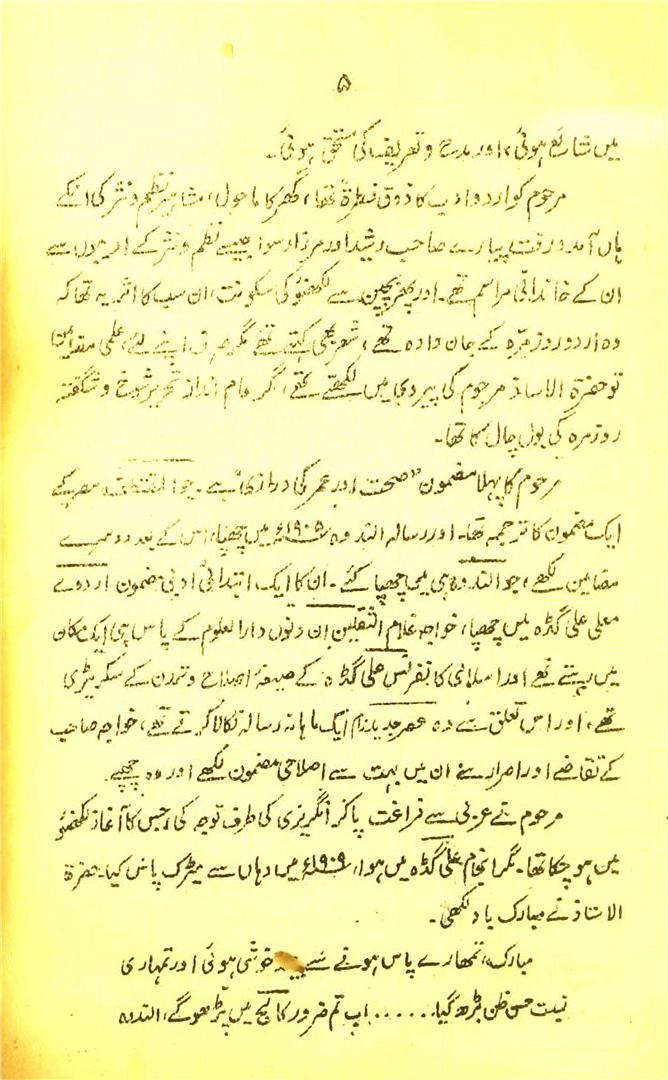 ۵
میں شایع ہوئی، اور مدح و تعریف کی مستحق ہوئی۔
مرحوم کو اردو ادب کا ذوق فطرۃً تھا، گھر کا ماحول، مشاہیر نظم و نثر کی انکے
ہاں آمد و رفت، پیارے صاحب رشید اور مرزا رسوا جیسے نظم و نثر کے ادیبوں سے
ان کے خاندانی مراسم تھے۔ اور پھر بچپن سے لکھنؤ کی سکونت، ان سب کا اثر یہ تھا کہ
وہ اردو روزمرہ کے جان دادہ تھے، شعر بھی کہتے تھے مگر صرف اپنے لئے، علمی مضامین
تو حضرۃ الاستاذ مرحوم کی پیروی میں لکھتے تھے، مگر عام انداز تحریر شوخ و شگفتہ
روزمرہ کی بول چال کا تھا۔
مرحوم کا پہلا مضمون "صحت اور عمر کی درازی ہے۔ جو المقتطف مصر کے
ایک مضمون کا ترجمہ تھا۔ اور رسالہ الندوہ ۱۹۰۵ء میں چھپا، اس کے بعد دوسرے
مضامین لکھے، جو الندوہ ہی میں چھپا کئے۔ ان کا ایک ابتدائی ادبی مضمون اردوے
معلی علی گڈہ میں چھپا، خواجہ غلام الثقلین ان دنوں دارالعلوم کے پاس ہی ایک مکان
میں رہتے تھے اور اسلامی کانفرنس علی گڈہ کے صیغۂ اصلاح و تمدن کے سکریٹری
تھے، اور اس تعلق سے وہ عصر جدید نام ایک ماہانہ رسالہ نکالا کرتے تھے، خواجہ صاحب
کے تقاضے اور اصرار سے ان میں بہت سے اصلاحی مضمون لکھے اور وہ چھپے۔
مرحوم نے عربی سے فراغت پاکر انگریزی کی طرف توجہ کی، جس کا آغاز لکھنؤ
میں ہو چکا تھا۔ مگر انجام علی گڈہ میں ہوا، ۱۹۰۹ء میں وہاں سے میٹرک پاس کیا۔ حضرۃ
الاستاذ نے مبارک باد لکھی۔
مبارک، تمھارے پاس ہونے سے خوشی ہوئی اور تمہاری
نیت حسن ظن بڑھ گیا...... اب تم ضرور کالج میں پڑھو گے، الندوہ